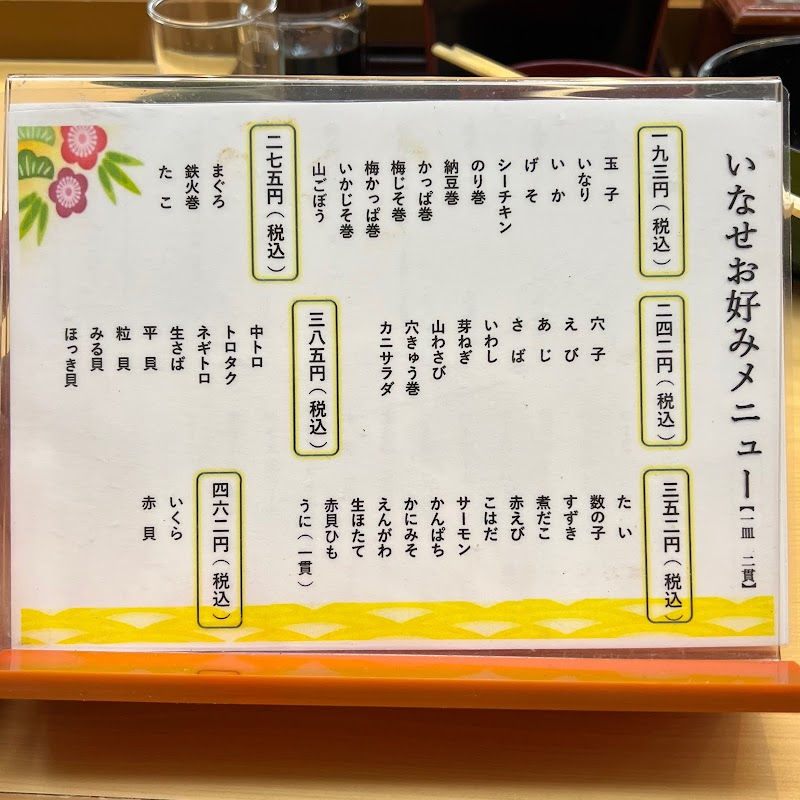 いなせお好みメニュー【一皿 二貫】
一九三円（税込）
玉子
いなり
いか
げそ
シーチキン
のり巻
納豆巻
かっぱ巻
梅じそ巻
梅かっぱ巻
いかじそ巻
山ごぼう
二七五円（税込）
まぐろ
鉄火巻
たこ
二四二円（税込）
穴子
えび
あじ
さば
いわし
芽ねぎ
山わさび
穴きゅう巻
カニサラダ
三八五円（税込）
中トロ
トロタク
ネギトロ
生さば
平貝
粒貝
みる貝
ほっき貝
三五二円（税込）
たい
数の子
すずき
煮だこ
赤えび
こはだ
サーモン
かんぱち
かにみそ
えんがわ
生ほたて
赤貝ひも
うに（一貫）
四六二円（税込）
いくら
赤貝